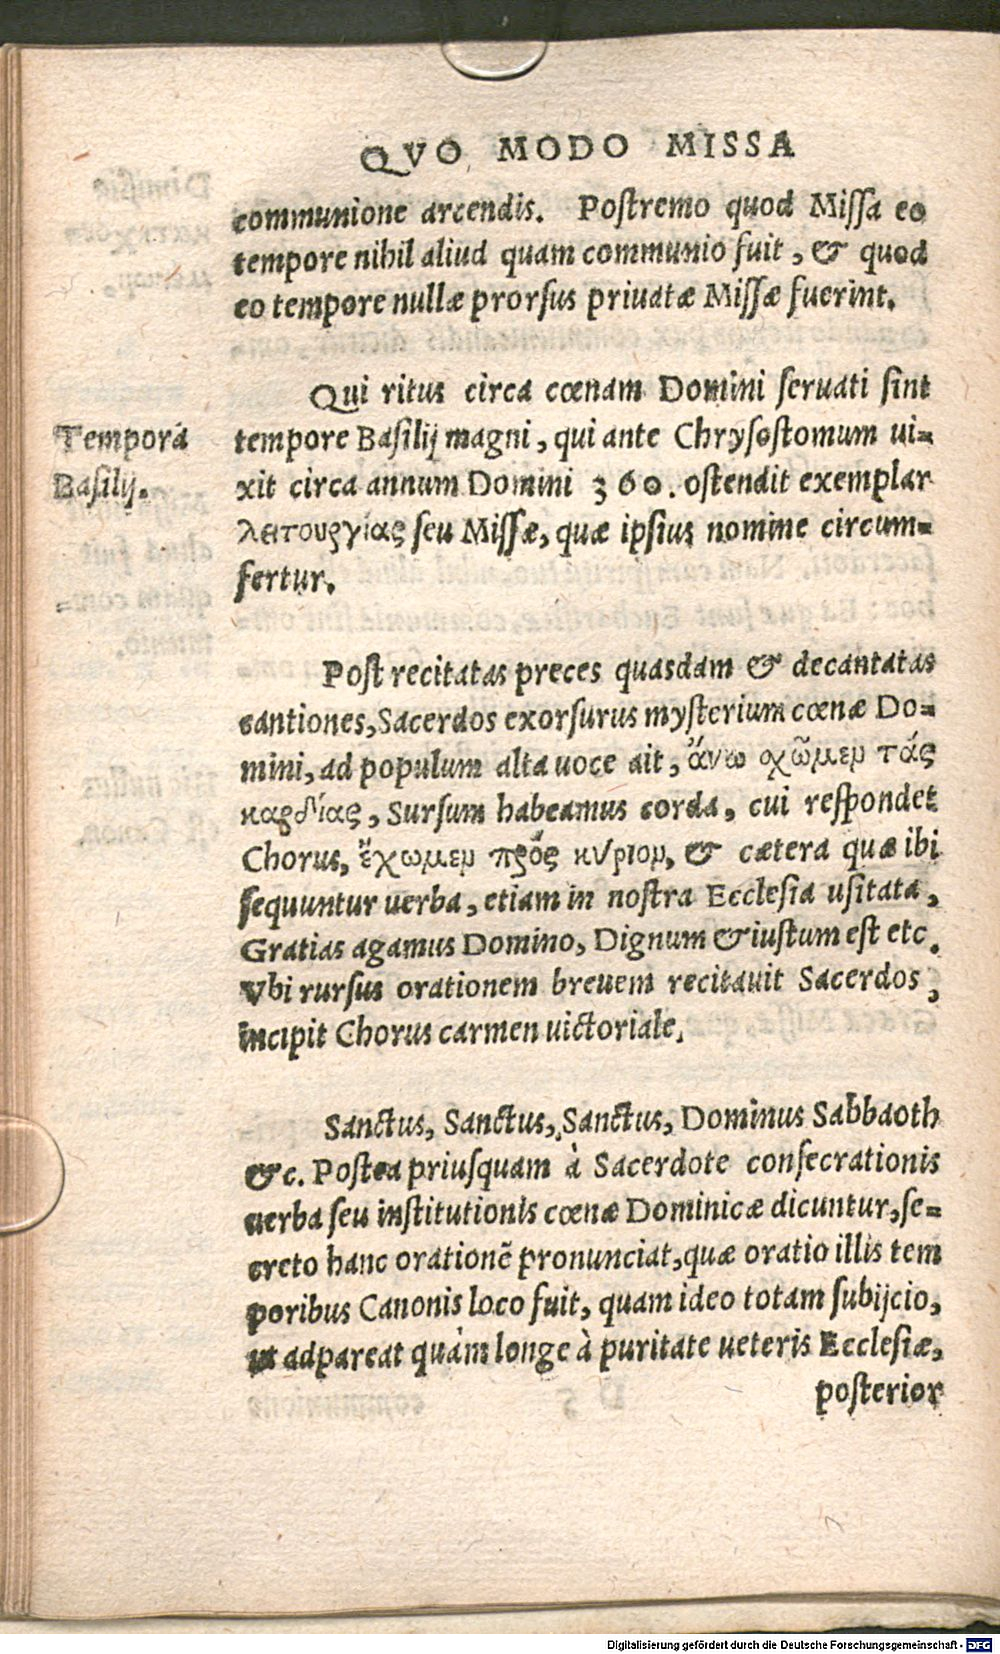 QVO MODO MISSA
communione arcendis. Postremo quod Missa eo
tempore nihil aliud quam communio fuit, & quod
eo tempore nullæ prorsus priuatæ Missæ fuerint.
Qui ritus circa cœnam Domini seruati sint
Tempora
Basilij.
tempore Basilij magni, qui ante Chrysostomum ui=
xit circa annum Domini 360. ostendit exemplar
λειτουργίας seu Missæ, quæ ipsius nomine circum=
fertur.
Post recitatas preces quasdam & decantatas
cantiones, Sacerdos exorsurus mysterium cœnæ Do=
mini, ad populum alta uoce ait, ἄνω χῶμεν τάς
καρδίας, Sursum habeamus corda, cui respondet
Chorus, ἔχωμεν πρός κύριον, & cætera quæ ibi
sequuntur uerba, etiam in nostra Ecclesia usitata,
Gratias agamus Domino, Dignum & iustum est etc.
Vbi rursus orationem breuem recitauit Sacerdos,
incipit Chorus carmen uictoriale.
Sanctus, Sanctus, Sanctus, Dominus Sabbaoth
&c. Postea priusquam à Sacerdote consecrationis
uerba seu institutionis cœnæ Dominicæ dicuntur, se=
creto hanc orationẽ pronunciat, quæ oratio illis tem
poribus Canonis loco fuit, quam ideo totam subijcio,
ut adpareat quàm longe à puritate ueteris Ecclesiæ,
posterior
Digitalisierung gefördert durch die Deutsche Forschungsgemeinschaft - DFG